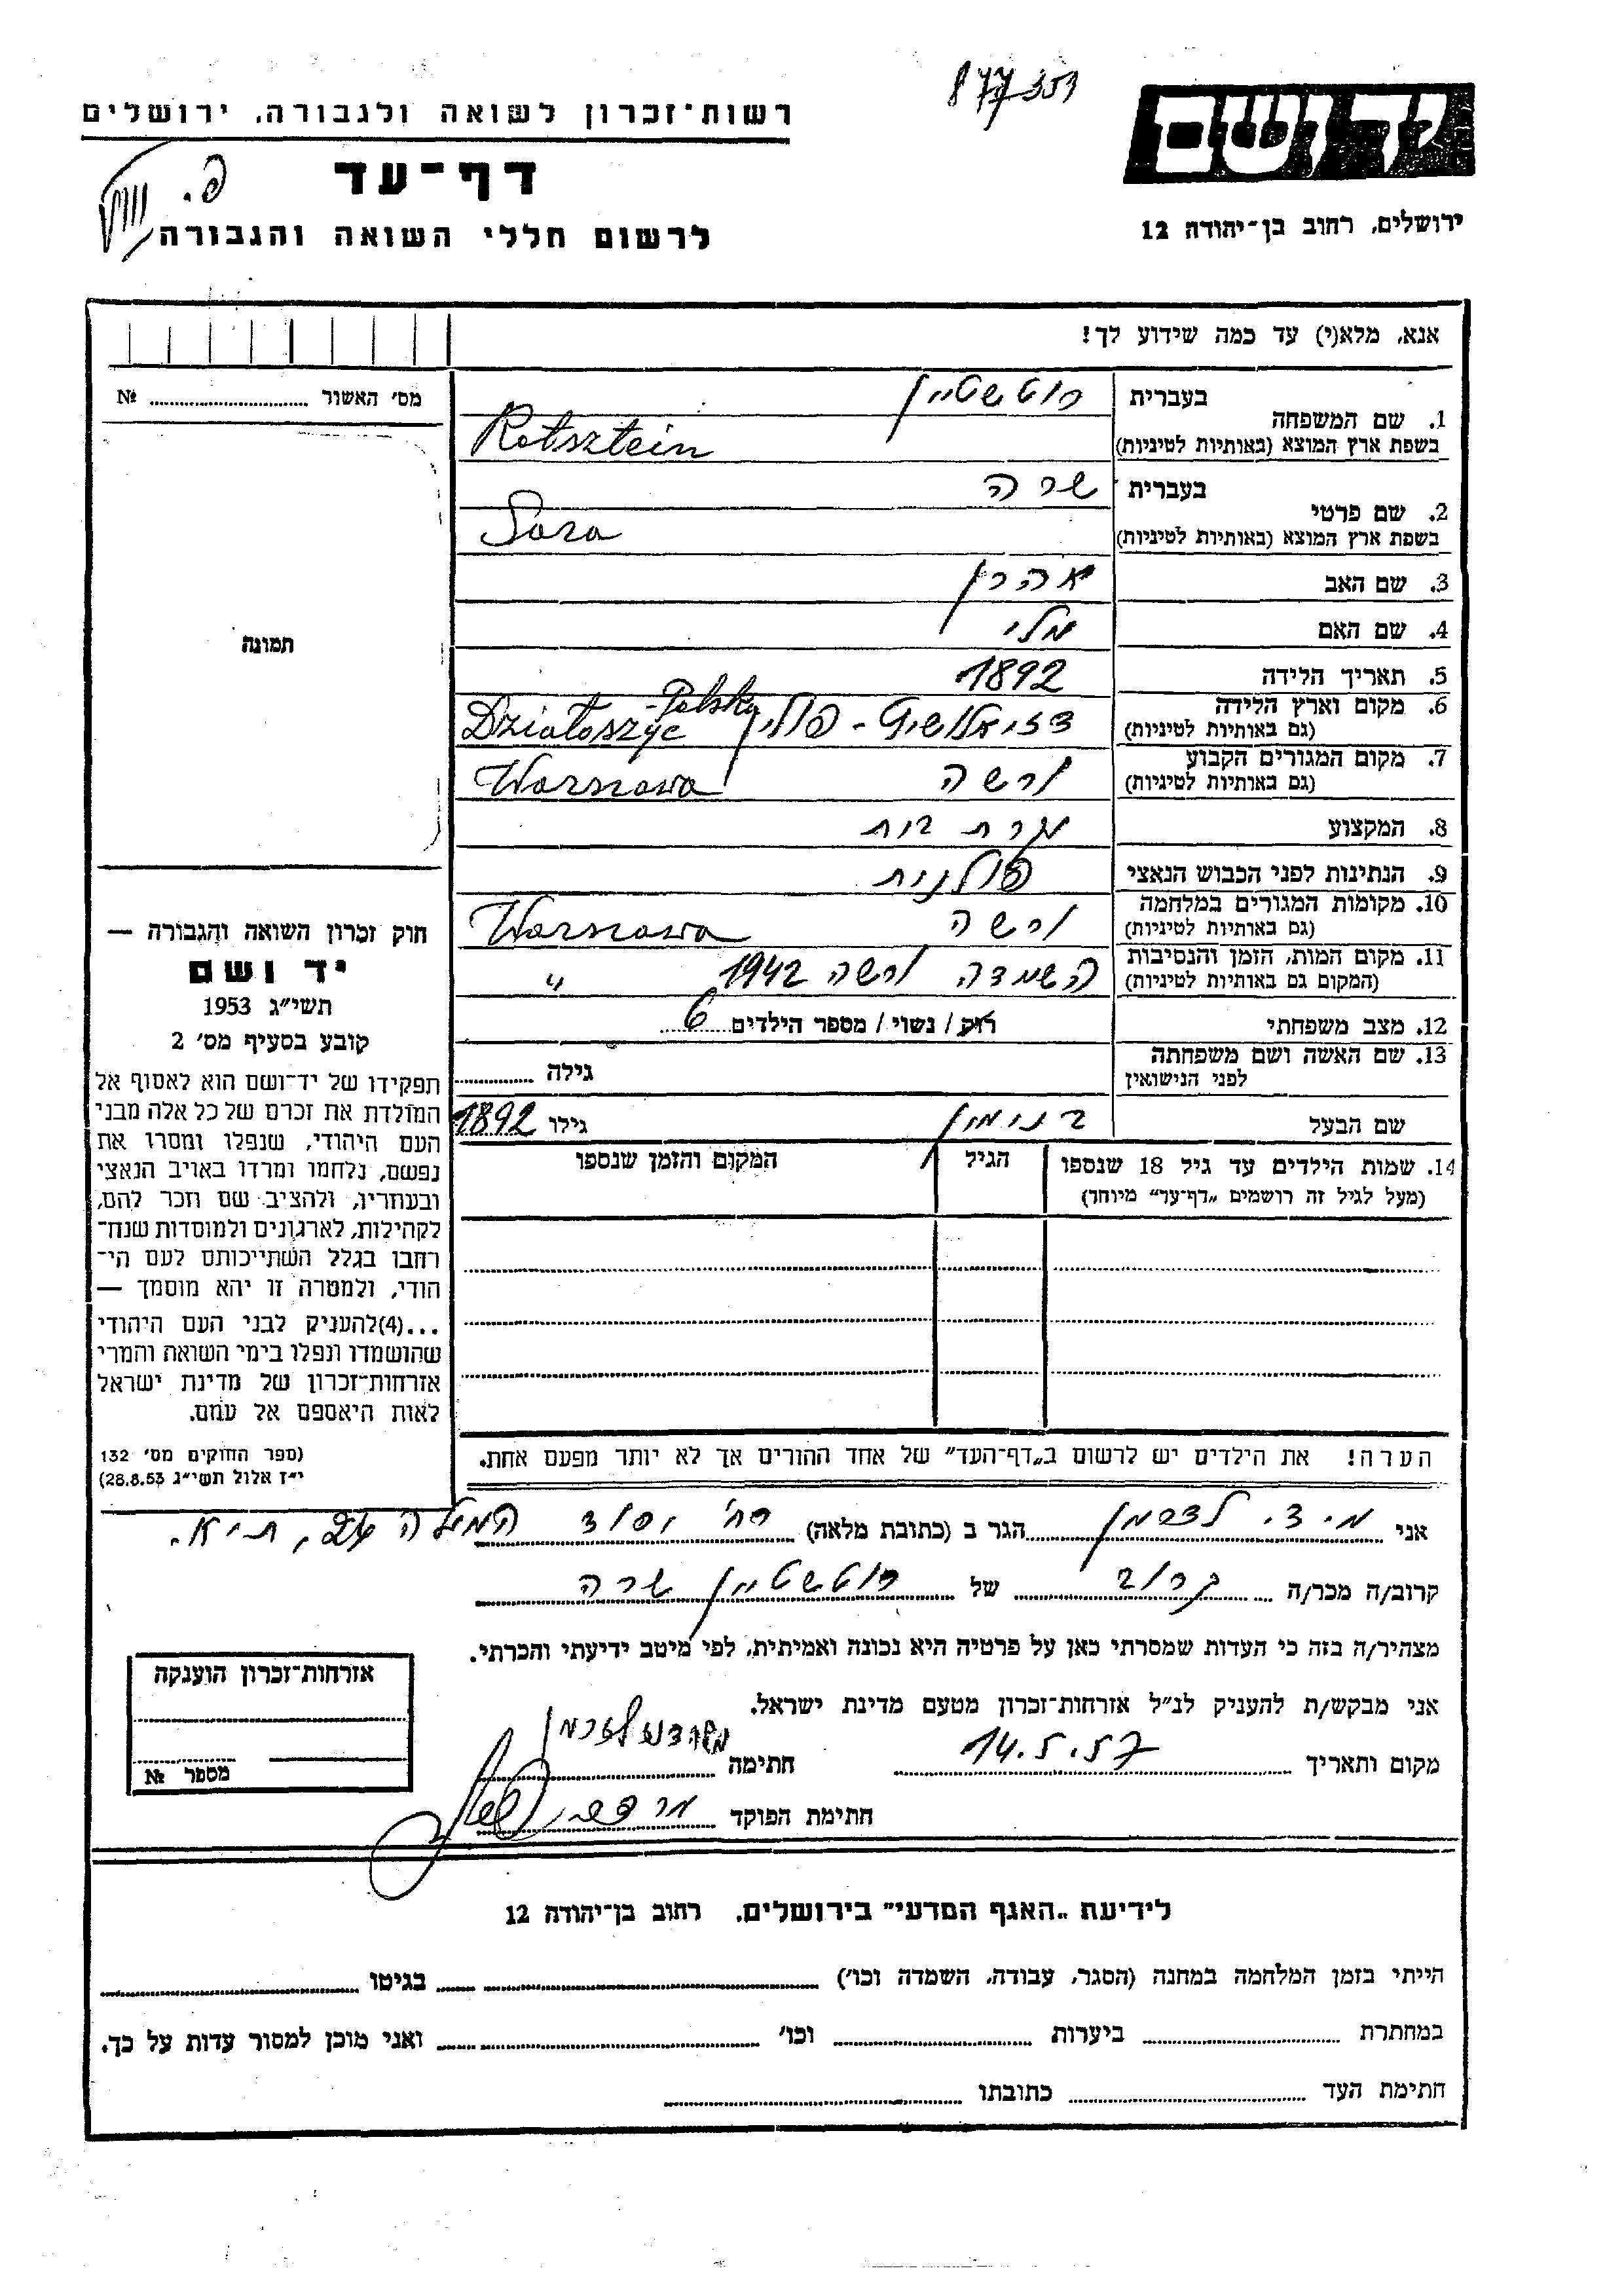 877351
יד ושם
רשות־זכרון לשואה ולגבורה, ירושלים
דף־עד
פ.
לרשום חללי השואה והגבורה
ירושלים, רחוב בן־יהודה 12
אנא, מלא(י) עד כמה שידוע לך!
מס׳ האשור № 
1. שם המשפחה
בעברית רוטשטיין
בשפת ארץ המוצא (באותיות לטיניות) Rotsztein
2. שם פרטי
בעברית שרה
בשפת ארץ המוצא (באותיות לטיניות) Sara
3. שם האב אהרן
4. שם האם מלי
5. תאריך הלידה 1892
6. מקום וארץ הלידה
(גם באותיות לטיניות) דזיאלושיץ - פולין Działoszyce - Polska
7. מקום המגורים הקבוע
(גם באותיות לטיניות) ורשה Warszawa
8. המקצוע עקרת בית
9. הנתינות לפני הכבוש הנאצי פולנית
10. מקומות המגורים במלחמה
(גם באותיות לטיניות) ורשה Warszawa
11. מקום המות, הזמן והנסיבות
(המקום גם באותיות לטיניות) השמדה ורשה 1942 "
12. מצב משפחתי רוק / נשוי / מספר הילדים 6
13. שם האשה ושם משפחתה
לפני הנישואין גילה
שם הבעל בנימין גילו 1892
14. שמות הילדים עד גיל 18 שנספו
(מעל לגיל זה רושמים „דף־עד״ מיוחד)
הגיל
המקום והזמן שנספו
הערה! את הילדים יש לרשום ב„דף־העד״ של אחד ההורים אך לא יותר מפעם אחת.
תמונה
חוק זכרון השואה והגבורה —
יד ושם
תשי״ג 1953
קובע בסעיף מס׳ 2
תפקידו של יד־ושם הוא לאסוף אל
המולדת את זכרם של כל אלה מבני
העם היהודי, שנפלו ומסרו את
נפשם, נלחמו ומרדו באויב הנאצי
ובעוזריו, ולהציב שם וזכר להם,
לקהילות, לארגונים ולמוסדות שנח־
רבו בגלל השתייכותם לעם הי־
הודי, ולמטרה זו יהא מוסמך —
...(4)להעניק לבני העם היהודי
שהושמדו ונפלו בימי השואה והמרי
אזרחות־זכרון של מדינת ישראל
לאות היאספם אל עמם.
(ספר החוקים מס׳ 132
י״ז אלול תשי״ג 28.8.53)
אני מ. צ. לדרמן הגר ב (כתובת מלאה) רח׳ יסוד המעלה, ת״א.
קרוב/ה מכר/ה קרוב של רוטשטיין שרה
מצהיר/ה בזה כי העדות שמסרתי כאן על פרטיה היא נכונה ואמיתית, לפי מיטב ידיעתי והכרתי.
אני מבקש/ת להעניק לנ״ל אזרחות־זכרון מטעם מדינת ישראל.
מקום ותאריך 14.5.57 חתימה
חתימת הפוקד
אזרחות־זכרון הוענקה
מספר №
לידיעת „האגף המדעי״ בירושלים, רחוב בן־יהודה 12
הייתי בזמן המלחמה במחנה (הסגר, עבודה, השמדה וכו׳) בגיטו
במחתרת ביערות וכו׳ ואני מוכן למסור עדות על כך.
חתימת העד כתובתו